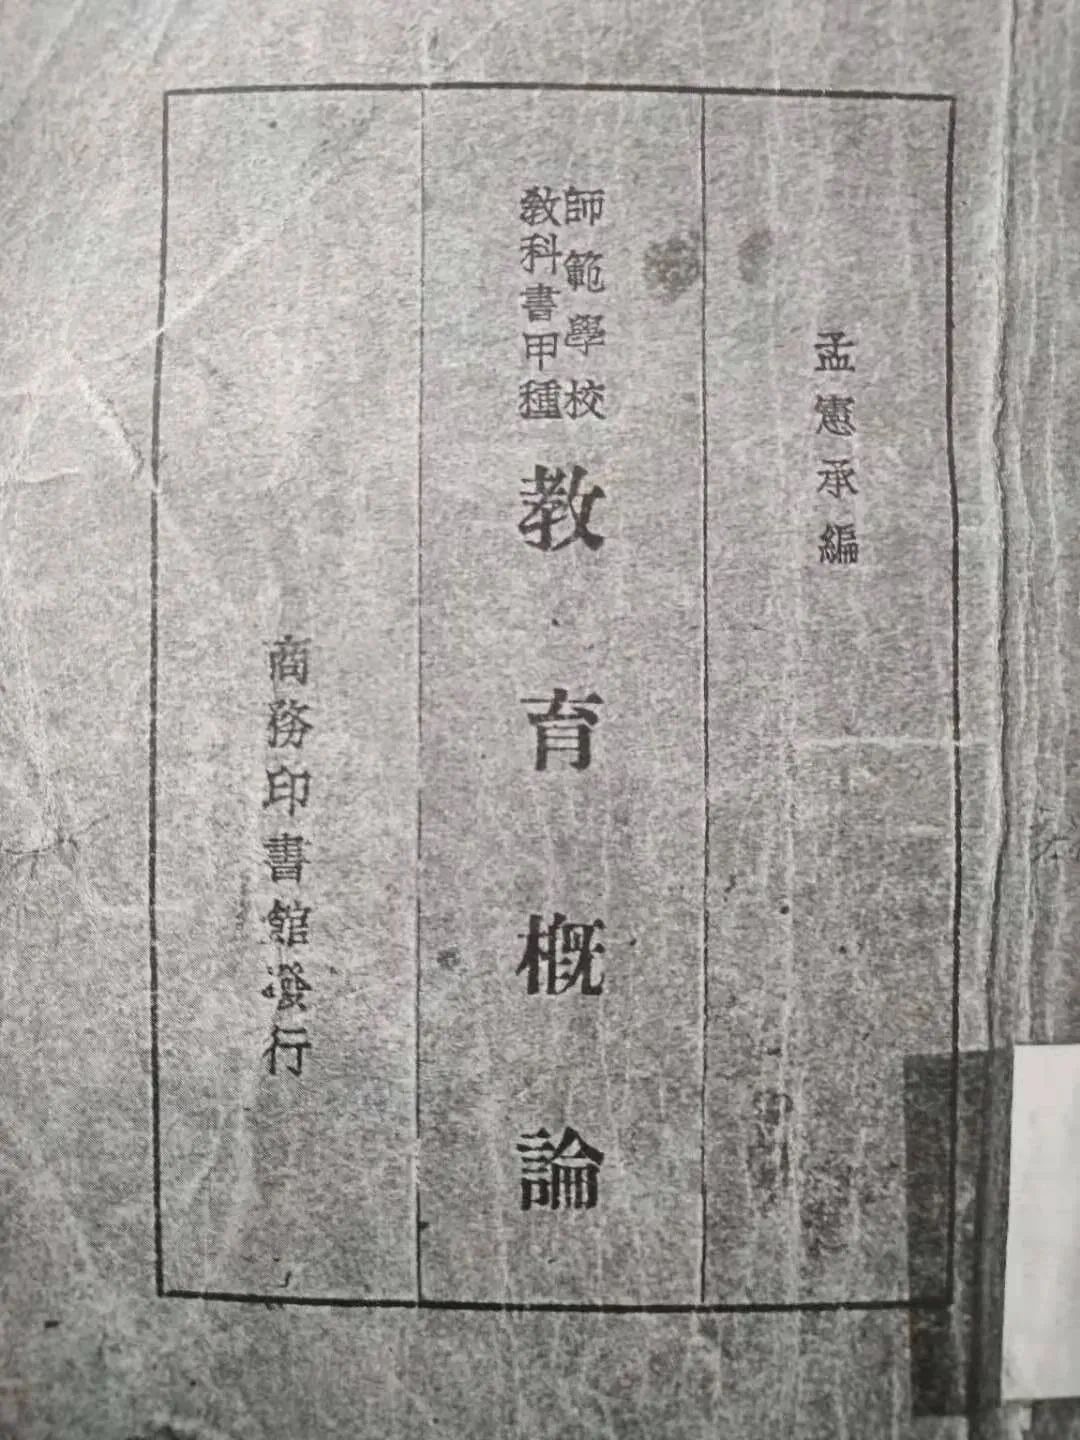 孟憲承編
師範學校
教科書甲種
教育概論
商務印書館發行